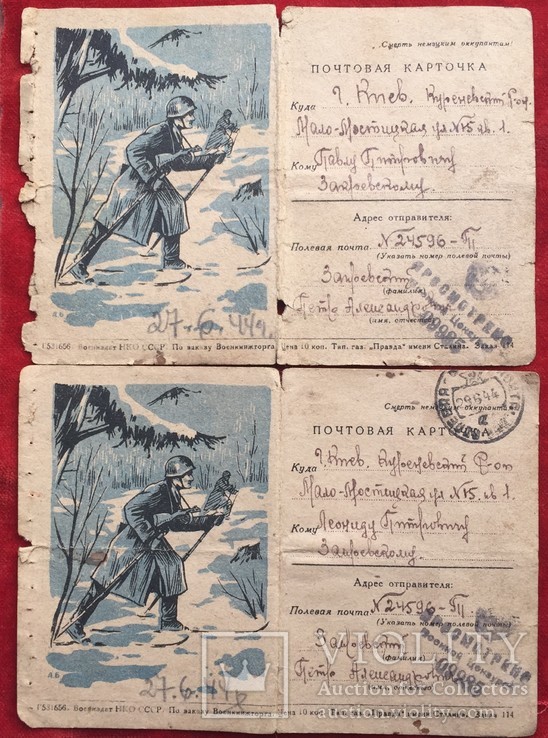 Смерть немецким оккупантам!
ПОЧТОВАЯ КАРТОЧКА
Куда г. Киев. Куреневский Р-он
Мало-Мостицкая ул №15 кв. 1.
Кому Павлу Питровичу
Закревскому.
Адрес отправителя:
Полевая почта №24596-П
(Указать номер полевой почты)
(фамилия)
Петро Александрович
(имя, отчество)
ПРОСМОТРЕНО
Военной Цензурой
27.6.44г.
Воениздат НКО СССР. По заказу Военкнижторга. Цена 10 коп. Тип. газ. „Правда" имени Сталина. Заказ 114
29 6 44
Смерть немецким оккупантам!
ПОЧТОВАЯ КАРТОЧКА
Куда г. Киев. Куреневский Р-он
Мало-Мостицкая ул №15. кв 1.
Кому Леониду Питровичу
Закревскому.
Адрес отправителя:
Полевая почта №24596-П
(Указать номер полевой почты)
(фамилия)
Петро Александрович
(имя, отчество)
ПРОСМОТРЕНО
Военной Цензурой
27.6.44г
Воениздат НКО СССР. По заказу Военкнижторга. Цена 10 коп. Тип. газ. „Правда" имени Сталина. Заказ 114
VIOLITY
Auction for Collectors
auction.violity.com